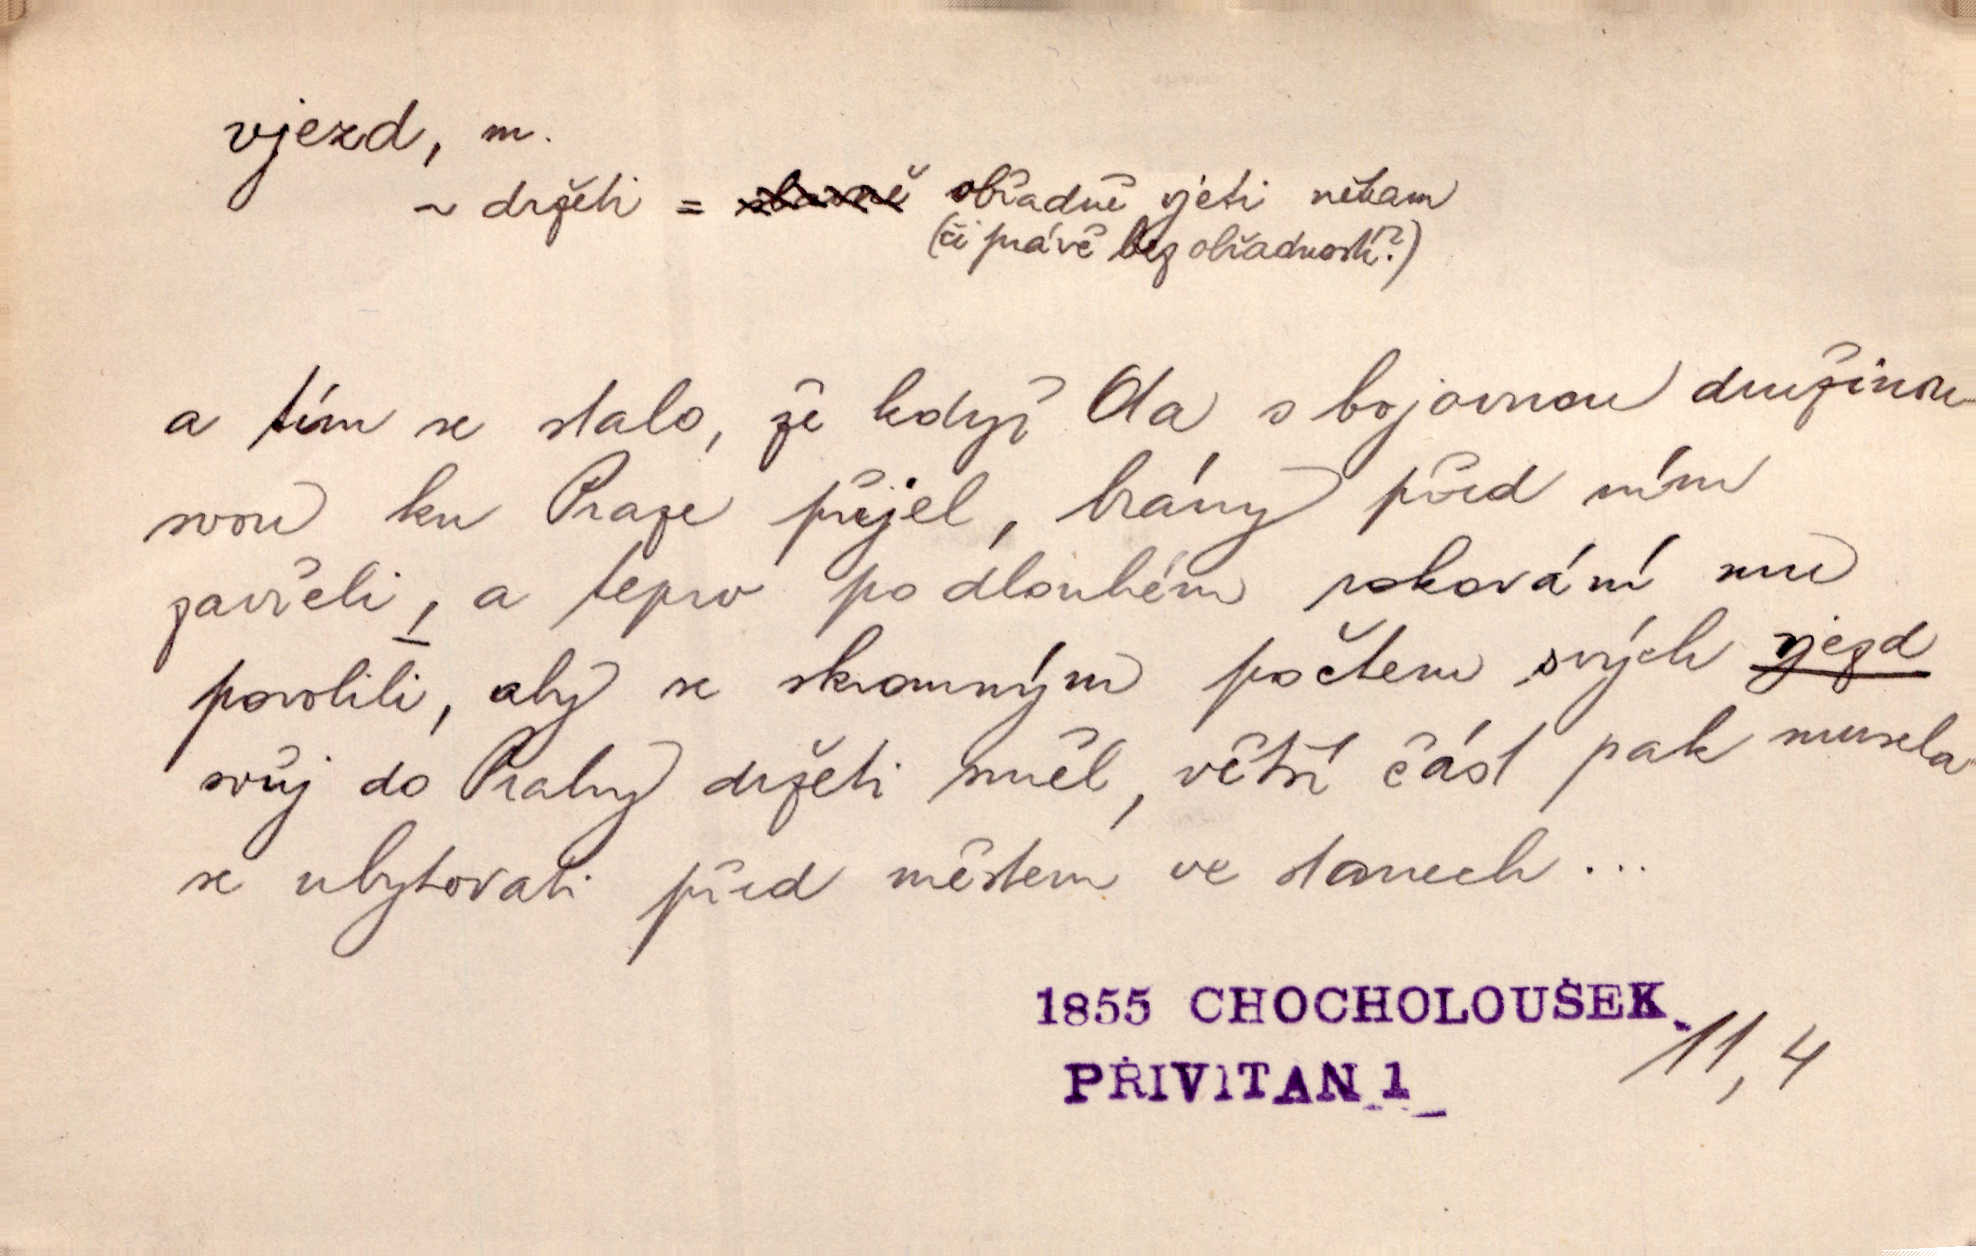 vjezd, m.
~ držeti = slavně obřadně vjeti někam
(či právě bez obřadností?)
a tím se stalo, že když Ota s bojovnou družinou
svou ku Praze přijel, brány před ním
zavřeli, a teprv po dlouhém rokování mu
povolili, aby se skromným počtem svých vjezd
svůj do Prahy držeti směl, větší část pak musela
se ubytovati před městem ve stanech ...
1855 CHOCHOLOUŠEK
PŘIVITAN 1
11, 4